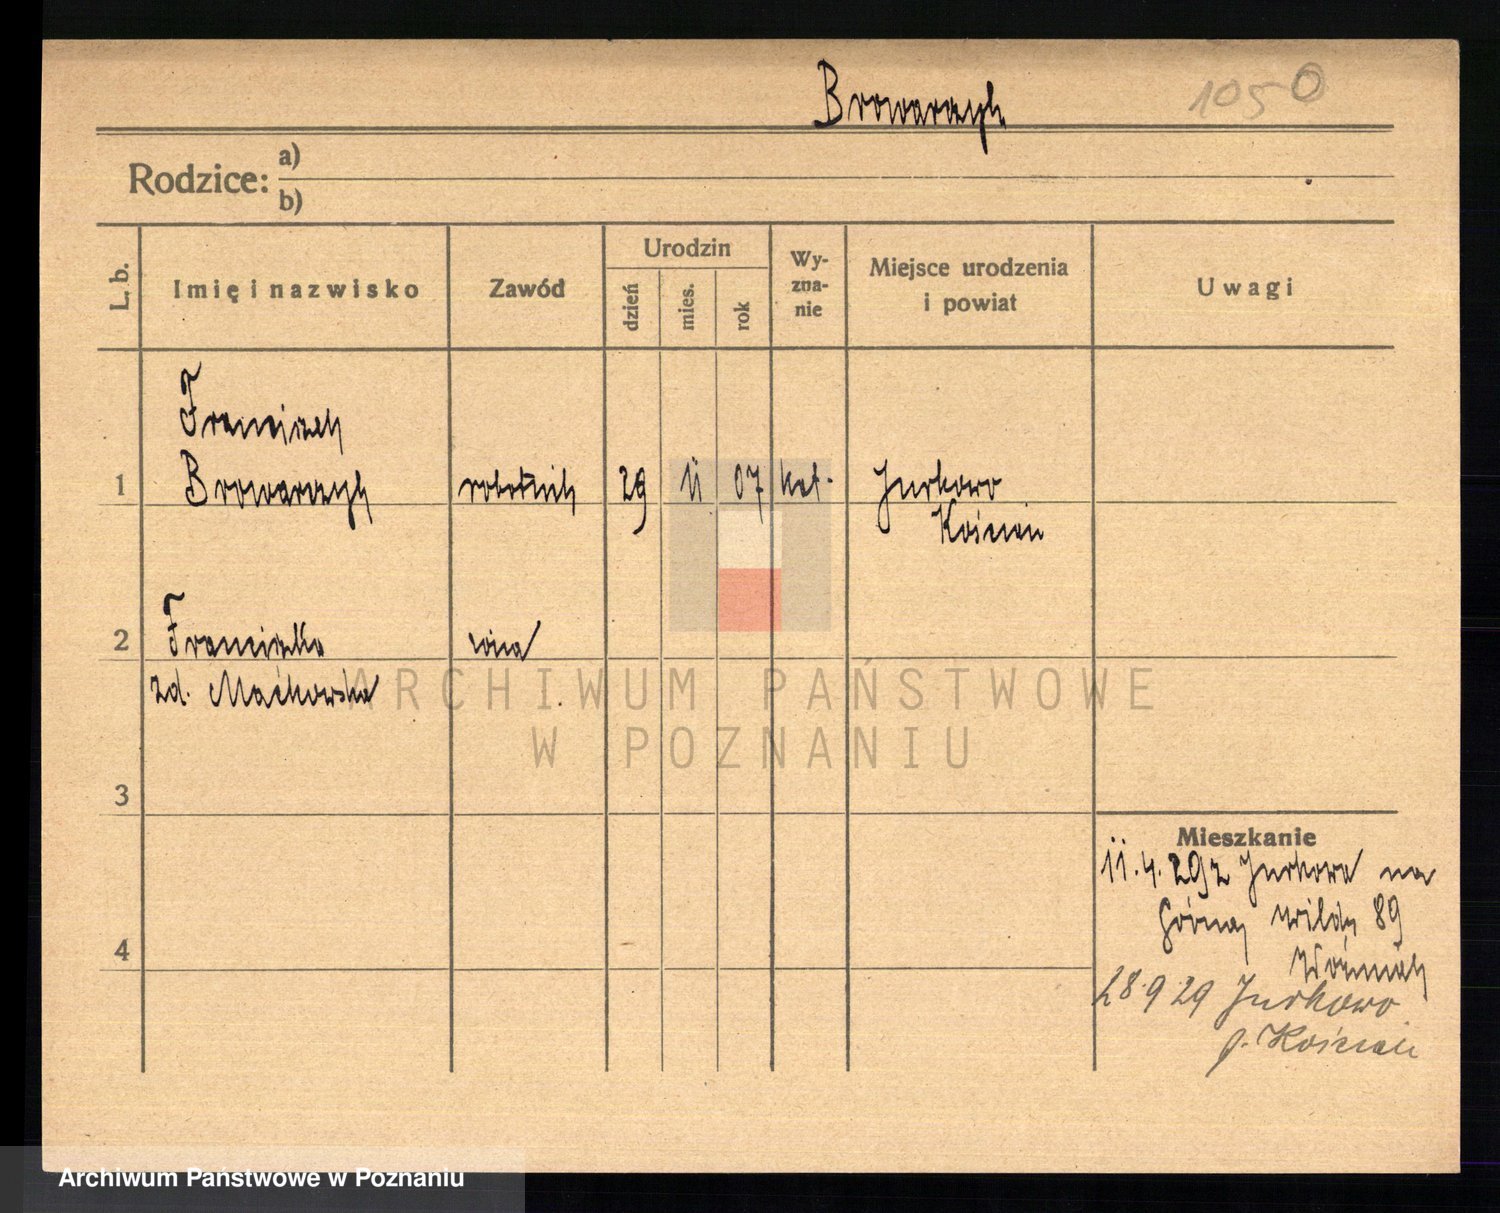 Browarzyk 1050
Rodzice: a)
b)
L. b.
Imię i nazwisko
Zawód
Urodzin
dzień
mies.
rok
Wy-
zna-
nie
Miejsce urodzenia
i powiat
Uwagi
Franciszek
1 Browarzyk robotnik 29 11 07 kat. Jurkowo
Kościan
2 Franciszka żona
zd. Maćkowska
ARCHIWUM PAŃSTWOWE
W POZNANIU
3
Mieszkanie
11.4.29 z Jurkowa na
Górna Wilda 89
4
28.9 29 Jurkowo
p. Kościan
Archiwum Państwowe w Poznaniu